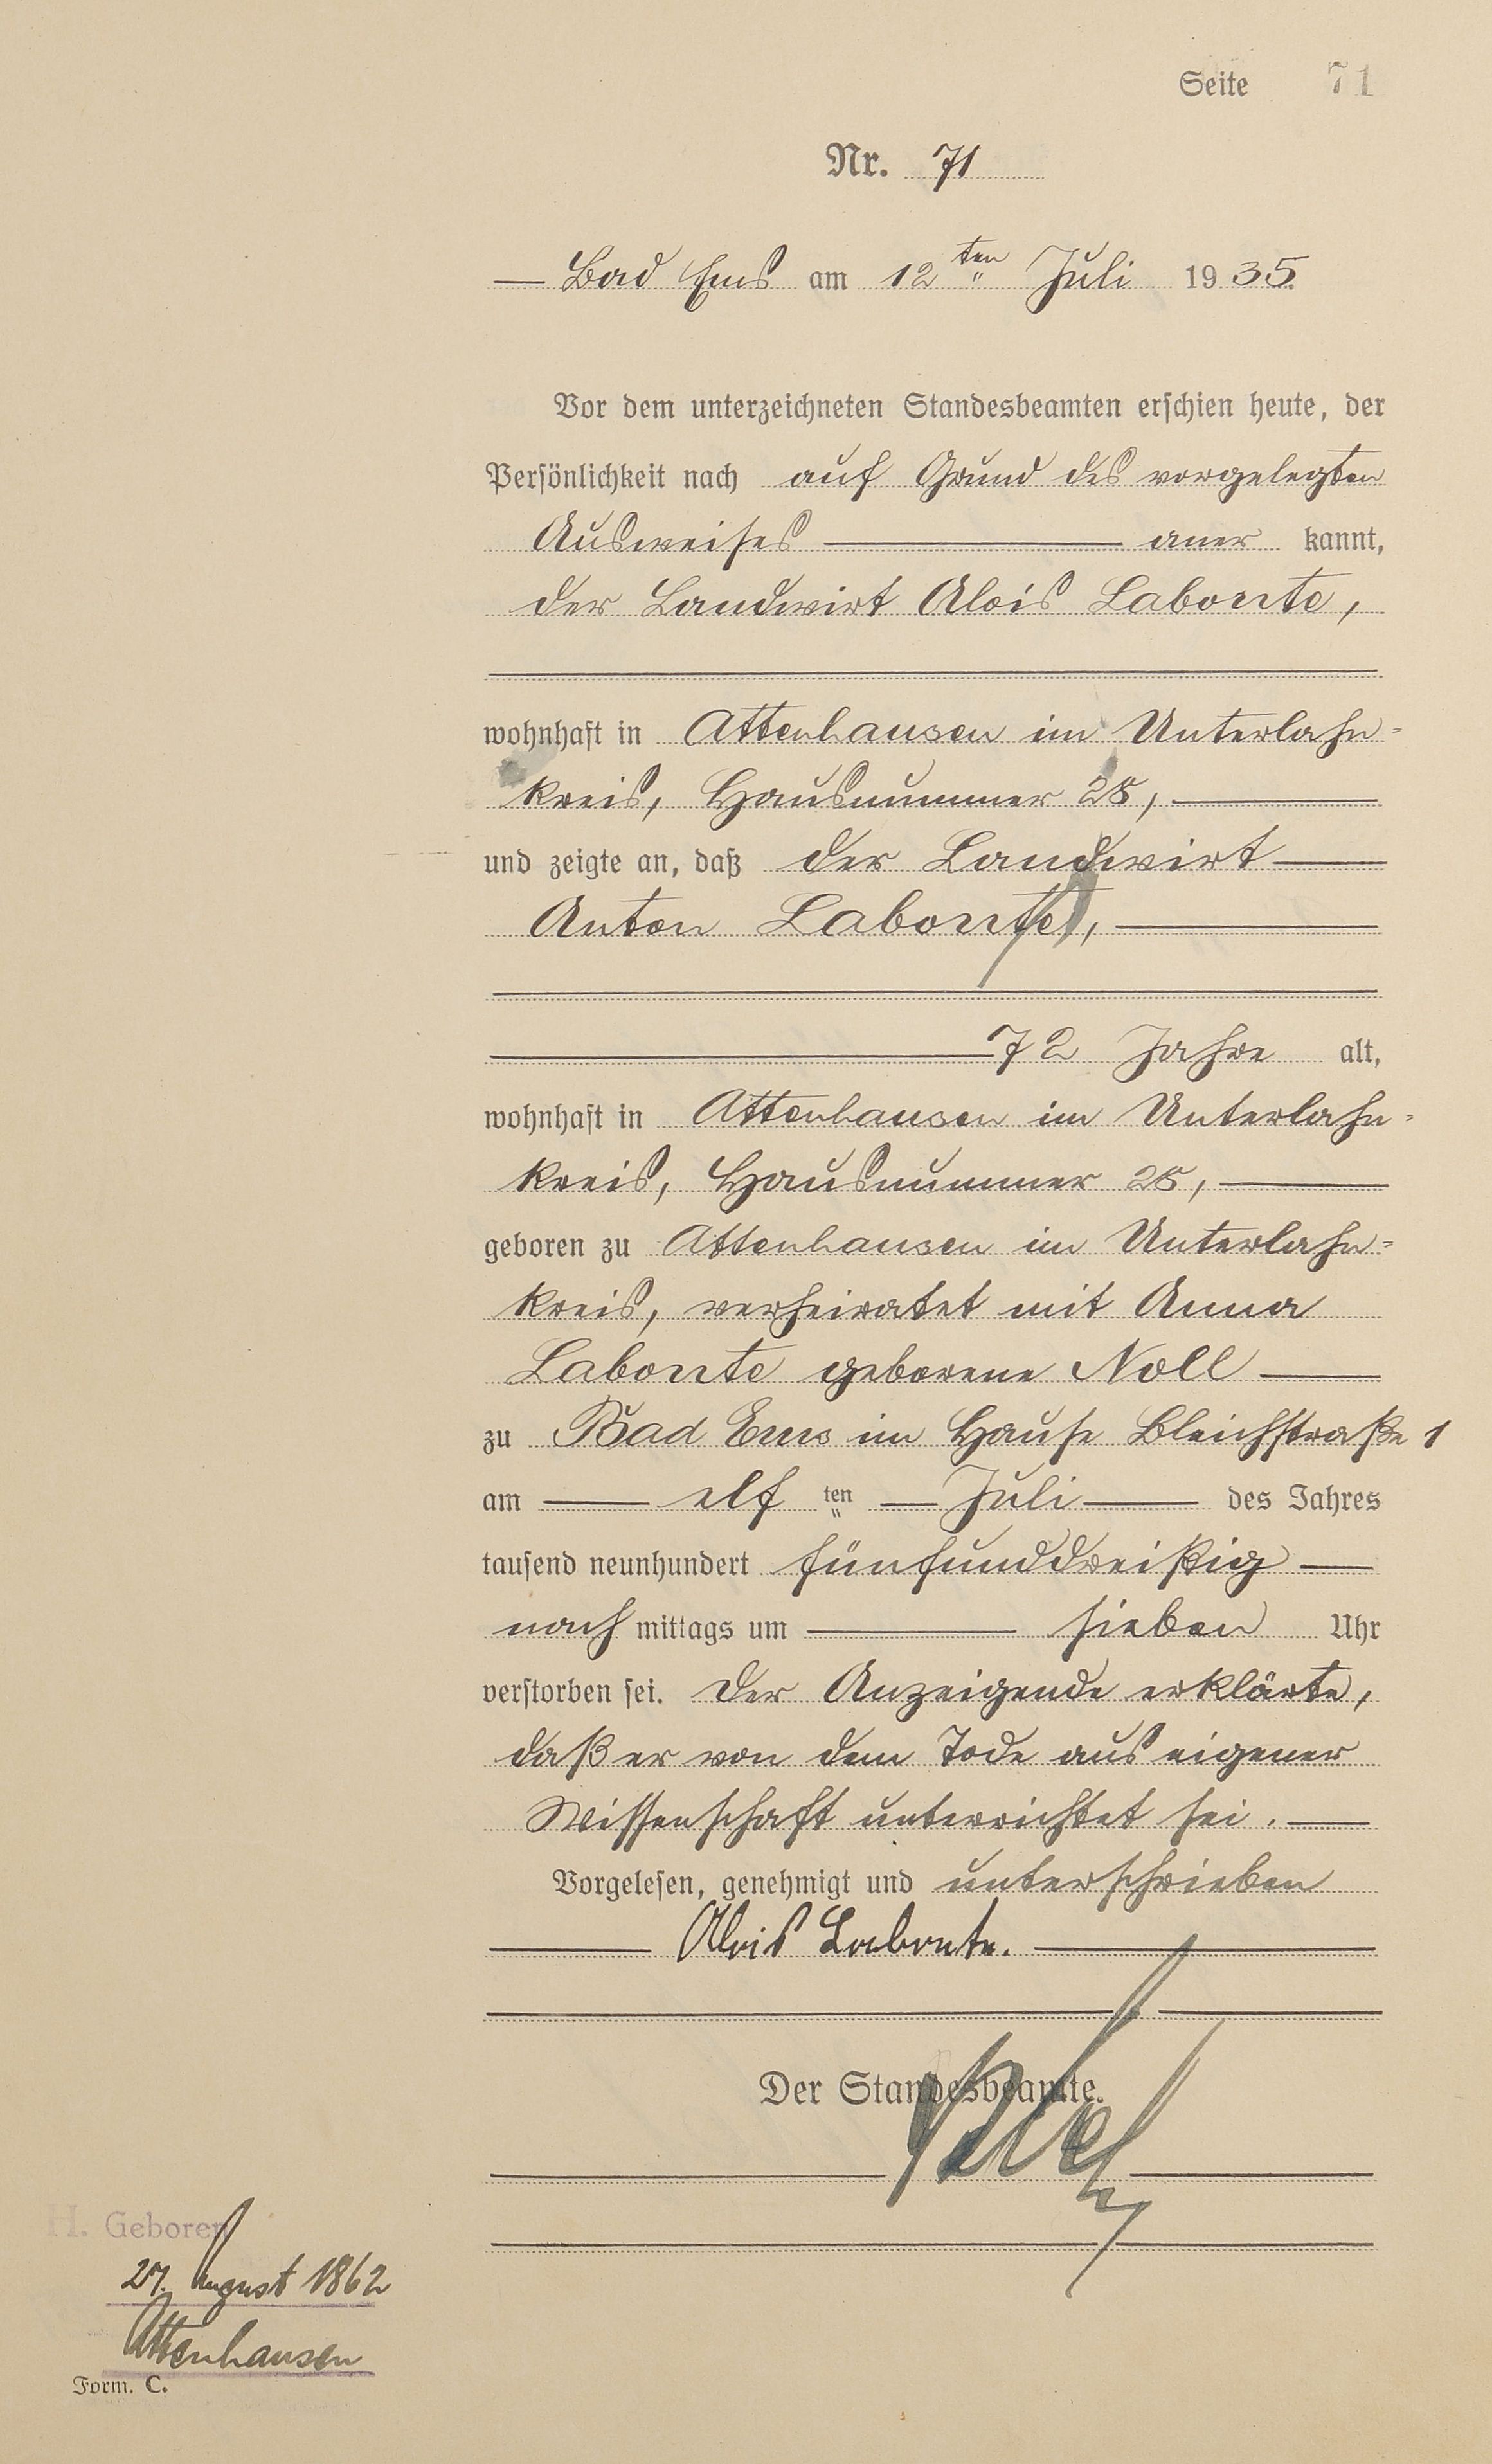 Seite 71
Nr. 71
— Bad Ems am 12ten Juli 1935.
Vor dem unterzeichneten Standesbeamten erschien heute, der
Persönlichkeit nach auf Grund des vorgelegten
Ausweises — aner kannt,
der Landwirt Alois Labonte,
wohnhaft in Attenhausen im Unterlahn-
kreis, Hausnummer 25, —
und zeigte an, daß der Landwirt —
Anton Labonte, —
72 Jahre alt,
wohnhaft in Attenhausen im Unterlahn-
kreis, Hausnummer 25, —
geboren zu Attenhausen im Unterlahn-
kreis, verheiratet mit Anna
Labonte geborene Noll —
zu Bad Ems im Hause Bleichstraße 1
am — elf ten — Juli — des Jahres
tausend neunhundert fünfunddreißig —
nach mittags um — sieben Uhr
verstorben sei. Der Anzeigende erklärte,
daß er von dem Tode aus eigener
Wissenschaft unterrichtet sei. —
Vorgelesen, genehmigt und unterschrieben
— Alois Labonte. —
Der Standesbeamte.
H. Geboren
27. August 1862
Attenhausen
Form. C.